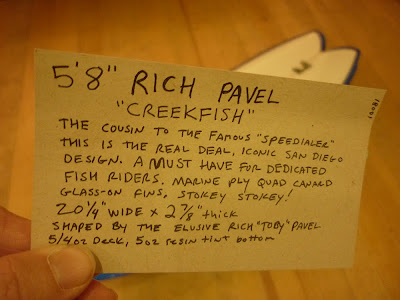 5'8" RICH PAVEL
"CREEKFISH"
THE COUSIN TO THE FAMOUS "SPEEDIALER"
THIS IS THE REAL DEAL, ICONIC SAN DIEGO
DESIGN. A MUST HAVE FOR DEDICATED
FISH RIDERS. MARINE PLY QUAD CANARD
GLASS-ON FINS, STOKEY STOKEY!
20 1/4" WIDE X 2 7/8" thick
SHAPED BY THE ELUSIVE RICH "TOBY" PAVEL
5/4oz Deck, 5oz resin tint bottom